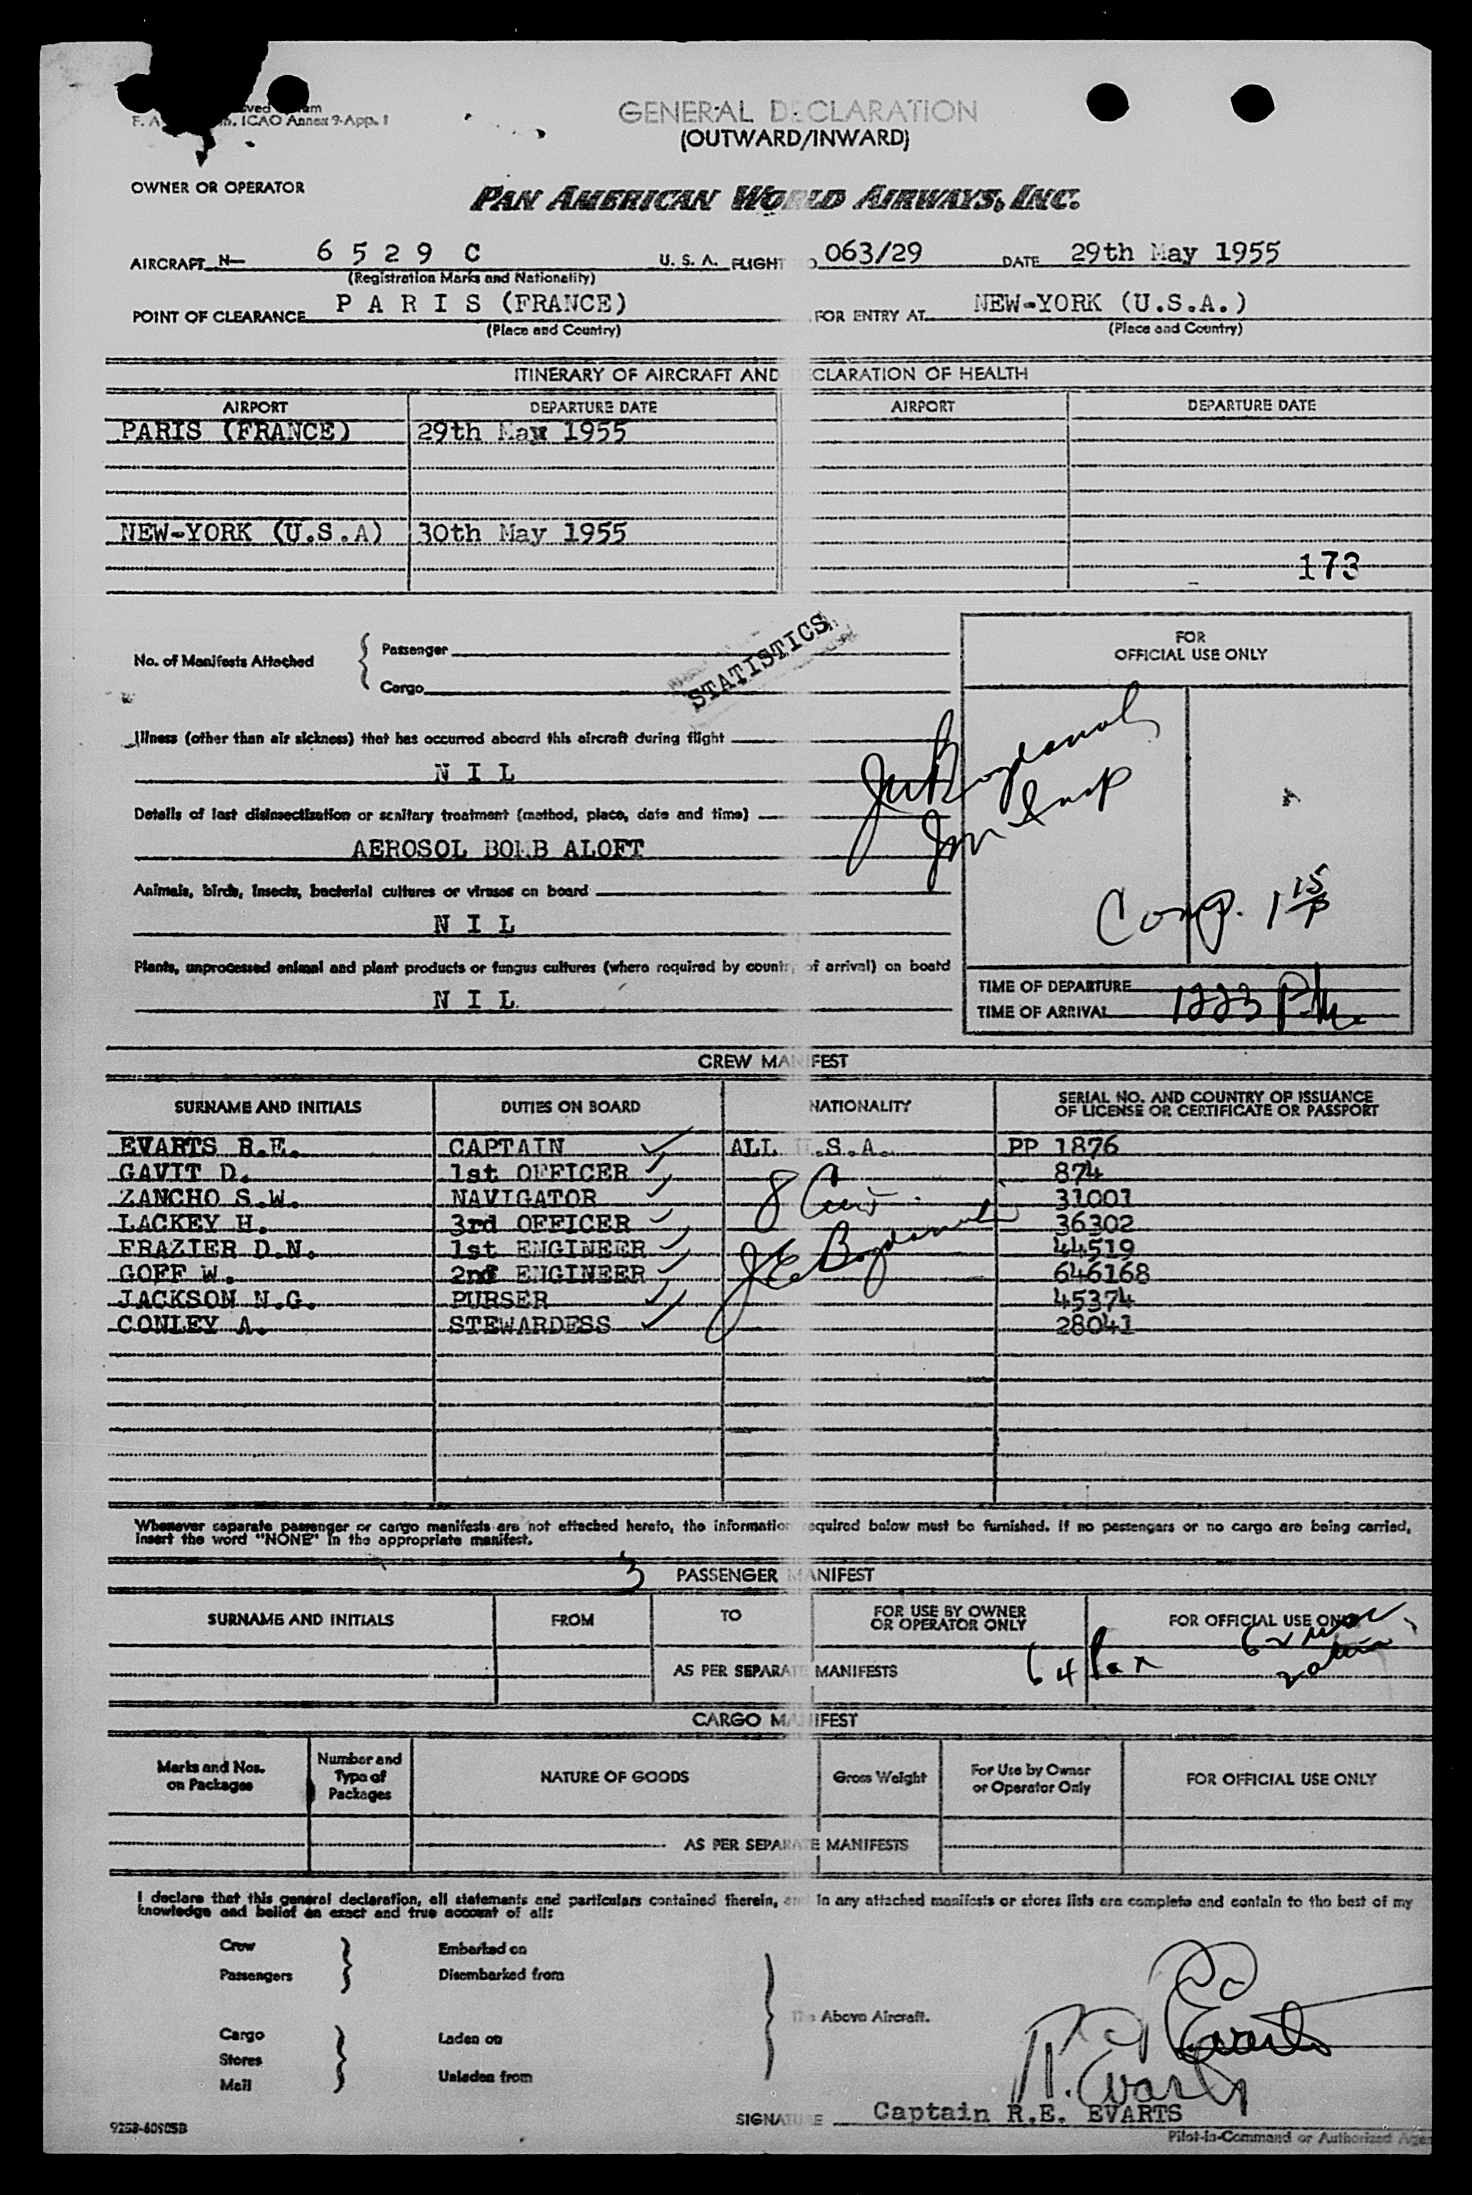 ICAO Annex 9-App. 1
GENERAL DECLARATION
(OUTWARD/INWARD)
OWNER OR OPERATOR
PAN AMERICAN WORLD AIRWAYS, INC.
AIRCRAFT N- 6 5 2 9 C U. S. A. FLIGHT 063/29 DATE 29th May 1955
(Registration Marks and Nationality)
POINT OF CLEARANCE P A R I S (FRANCE) FOR ENTRY AT NEW-YORK (U.S.A.)
(Place and Country) (Place and Country)
ITINERARY OF AIRCRAFT AND DECLARATION OF HEALTH
AIRPORT DEPARTURE DATE AIRPORT DEPARTURE DATE
PARIS (FRANCE) 29th May 1955
NEW-YORK (U.S.A) 30th May 1955
173
No. of Manifests Attached { Passenger
Cargo
STATISTICS
FOR
OFFICIAL USE ONLY
Illness (other than air sickness) that has occurred aboard this aircraft during flight
N I L
Details of last disinsectization or sanitary treatment (method, place, date and time)
AEROSOL BOMB ALOFT
Imm Insp
Animals, birds, insects, bacterial cultures or viruses on board
N I L
Comp. 1 15 P
Plants, unprocessed animal and plant products or fungus cultures (where required by country of arrival) on board
N I L
TIME OF DEPARTURE
TIME OF ARRIVAL 1223 P.M.
CREW MANIFEST
SURNAME AND INITIALS DUTIES ON BOARD NATIONALITY SERIAL NO. AND COUNTRY OF ISSUANCE
OF LICENSE OR CERTIFICATE OR PASSPORT
EVARTS R.E. CAPTAIN ALL U.S.A. PP 1876
GAVIT D. 1st OFFICER 874
ZANCHO S.W. NAVIGATOR 31001
LACKEY H. 3rd OFFICER 36302
FRAZIER D.N. 1st ENGINEER 44519
GOFF W. 2nd ENGINEER 646168
JACKSON N.G. PURSER 45374
CONLEY A. STEWARDESS 28041
8 Crew
Whenever separate passenger or cargo manifests are not attached hereto, the information required below must be furnished. If no passengers or no cargo are being carried,
insert the word "NONE" in the appropriate manifest.
3
PASSENGER MANIFEST
SURNAME AND INITIALS FROM TO FOR USE BY OWNER
OR OPERATOR ONLY FOR OFFICIAL USE ONLY
AS PER SEPARATE MANIFESTS 64 Pax
CARGO MANIFEST
Marks and Nos.
on Packages Number and
Type of
Packages NATURE OF GOODS Gross Weight For Use by Owner
or Operator Only FOR OFFICIAL USE ONLY
AS PER SEPARATE MANIFESTS
I declare that this general declaration, all statements and particulars contained therein, and in any attached manifests or stores lists are complete and contain to the best of my
knowledge and belief an exact and true account of all:
Crew Embarked on
Passengers Disembarked from
The Above Aircraft.
Cargo Laden on
Stores
Mail Unladen from
R E Evarts
R. Evarts
SIGNATURE Captain R.E. EVARTS
Pilot-in-Command or Authorized Agent
9253-60905B